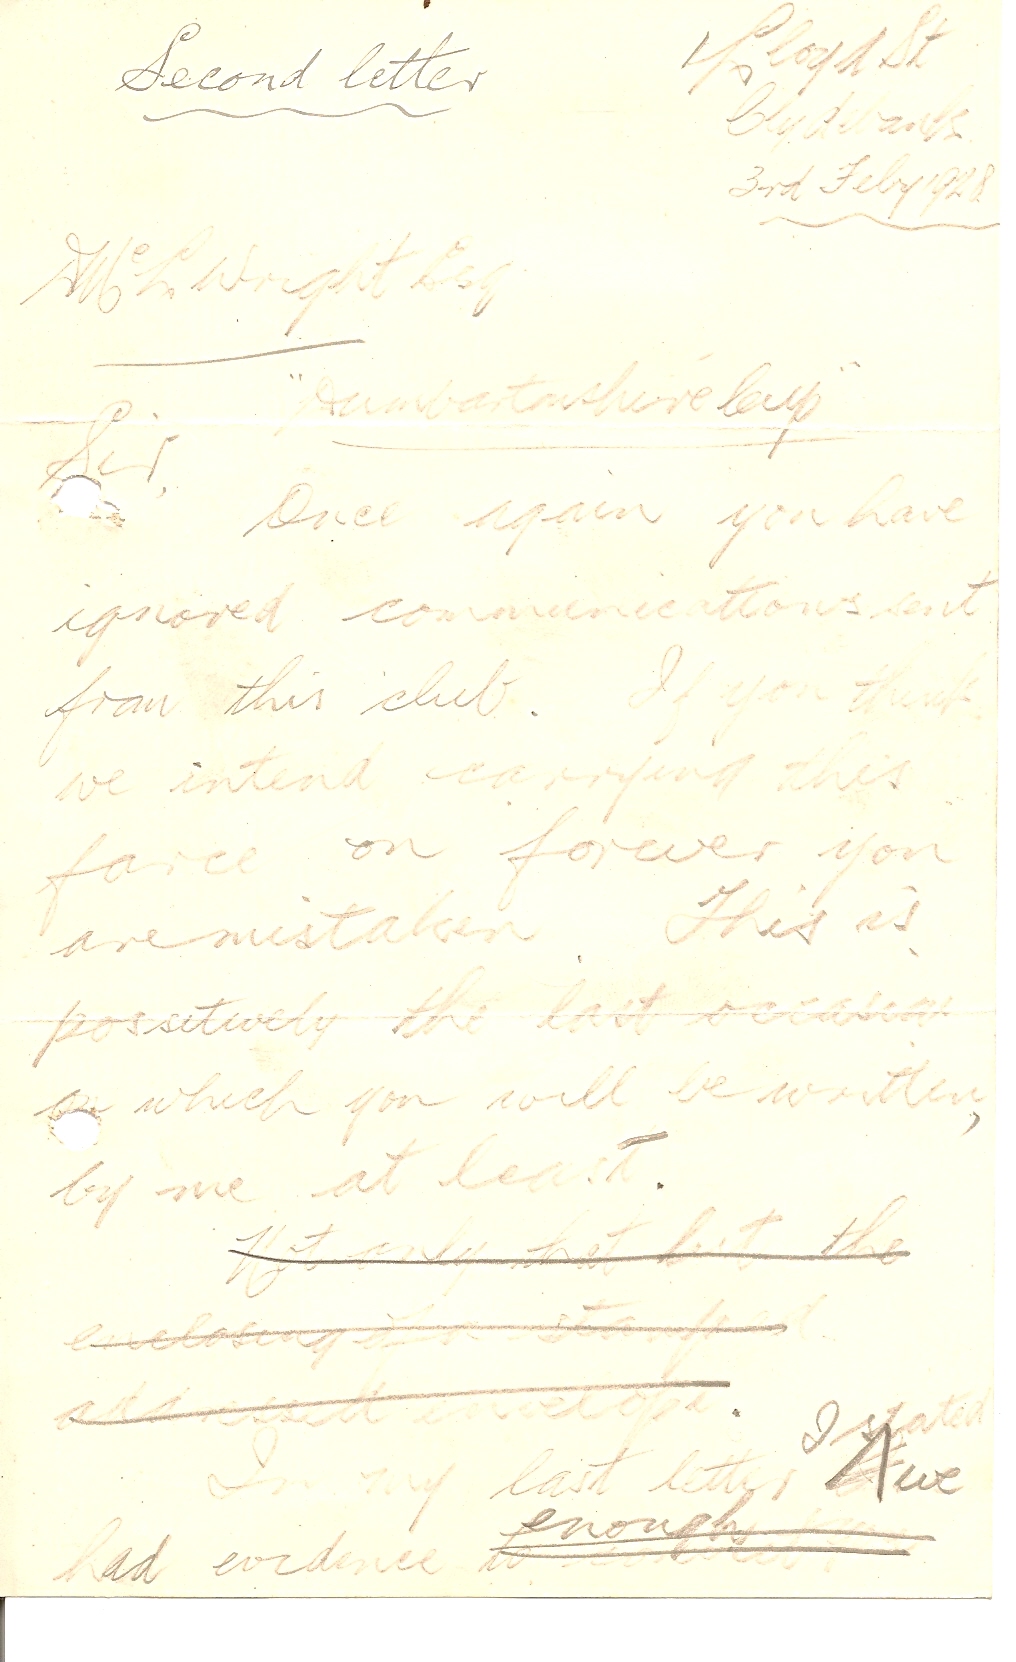 Second letter
Lloyd St
Clydebank
3rd Feby 1928
Mc L. Wright Esq
"Dumbartonshire Cup"
Sir,
Once again you have
ignored communications sent
from this club. If you think
we intend carrying this
farce on forever you
are mistaken This is
possitively the last occasion
on which you will be written,
by me at least.
Not only that but the
enclosing a stamped
addressed envelope.
I stated
In my last letter we
had evidence enough